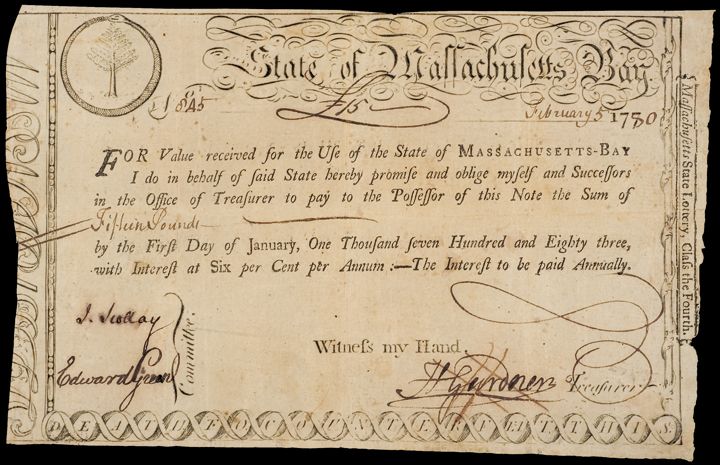 State of Maſſachuſetts Bay.
£15
February 5 1780
FOR Value received for the Uſe of the State of MASSACHUSETTS-BAY
I do in behalf of ſaid State hereby promiſe and oblige myſelf and Succeſſors
in the Office of Treaſurer to pay to the Poſſeſſor of this Note the Sum of
Fifteen Pounds
by the Firſt Day of January, One Thouſand ſeven Hundred and Eighty three,
with Intereſt at Six per Cent per Annum :—The Intereſt to be paid Annually.
J. Scollay
Edward Green
Committee.
Witneſs my Hand,
H Gardner Treaſurer
DEATH TO COUNTERFEIT THIS.
Maſſachuſetts State Lottery, Claſs the Fourth.